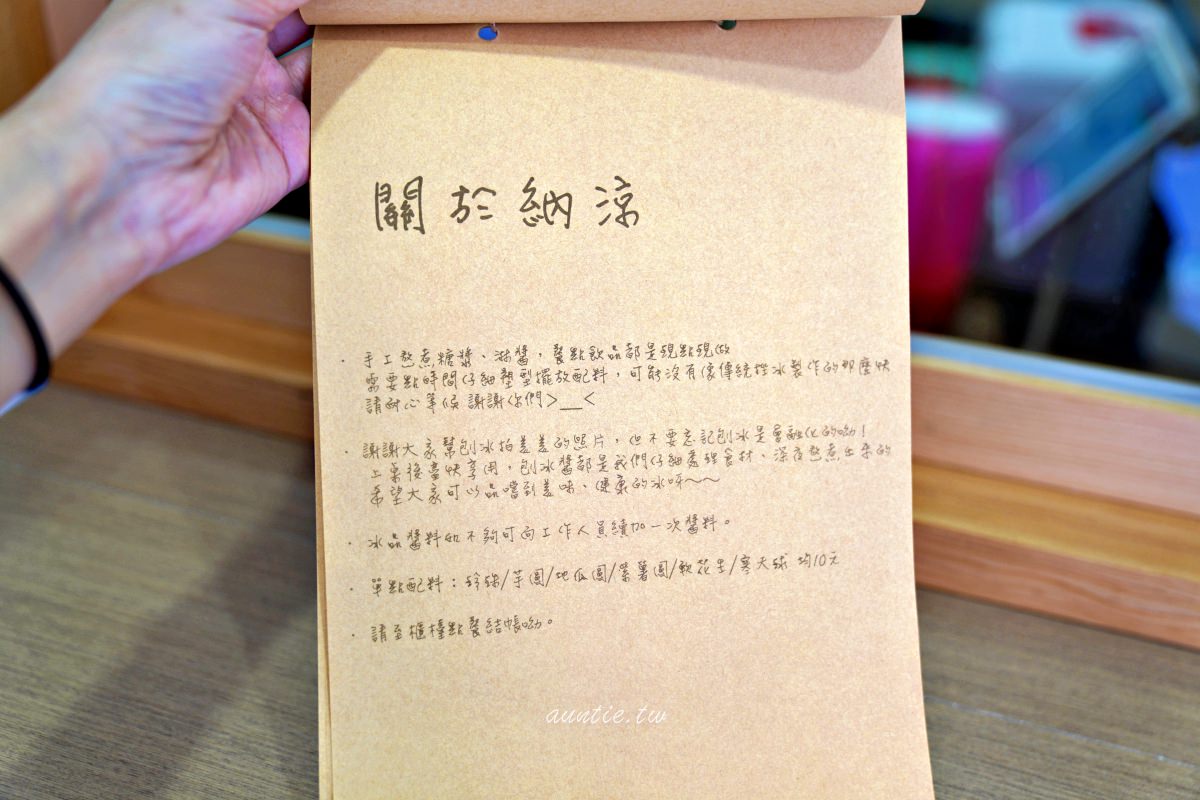 關於納涼
· 手工熬煮糖漿、淋醬，餐點飲品都是現點現做
需要點時間仔細塑型擺放配料，可能沒有像傳統挫冰製作的那麼快
請耐心等候 謝謝你們>__<
· 謝謝大家幫刨冰拍美美的照片，但不要忘記刨冰是會融化的呦！
上桌後盡快享用，刨冰醬都是我們仔細處理食材、深夜熬煮出來的
希望大家可以品嚐到美味、健康的冰呀~~
· 冰品醬料如不夠可向工作人員續加一次醬料。
· 單點配料：珍珠/芋圓/地瓜圓/紫薯圓/軟花生/寒天球 均10元
· 請至櫃檯點餐結帳呦。
auntie.tw